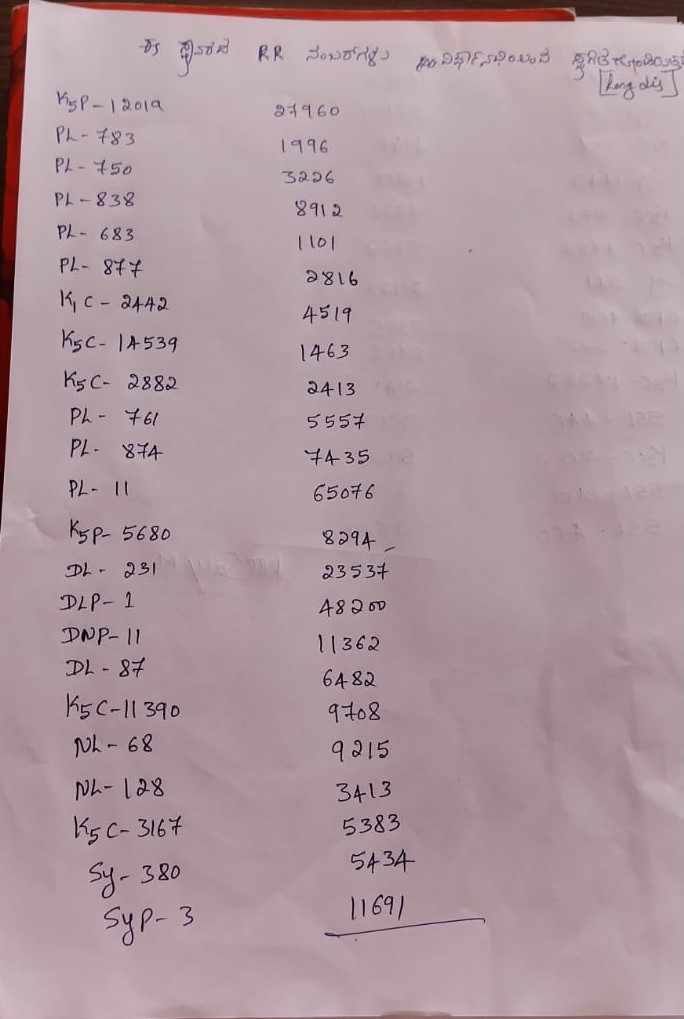 ಈ ಸ್ಥಾವರದ RR ನಂಬರ್‌ಗಳು
[Long dis]
K5P-12019 27960
PL-783 1996
PL-750 3226
PL-838 8912
PL-683 1101
PL-877 2816
K1C-2442 4519
K5C-14539 1463
K5C-2882 2413
PL-761 5557
PL-874 7435
PL-11 65076
K5P-5680 8294
DL-231 23537
DLP-1 48200
DNP-11 11362
DL-87 6482
K5C-11390 9708
NL-68 9215
NL-128 3413
K5C-3167 5383
Sy-380 5434
SyP-3 11691